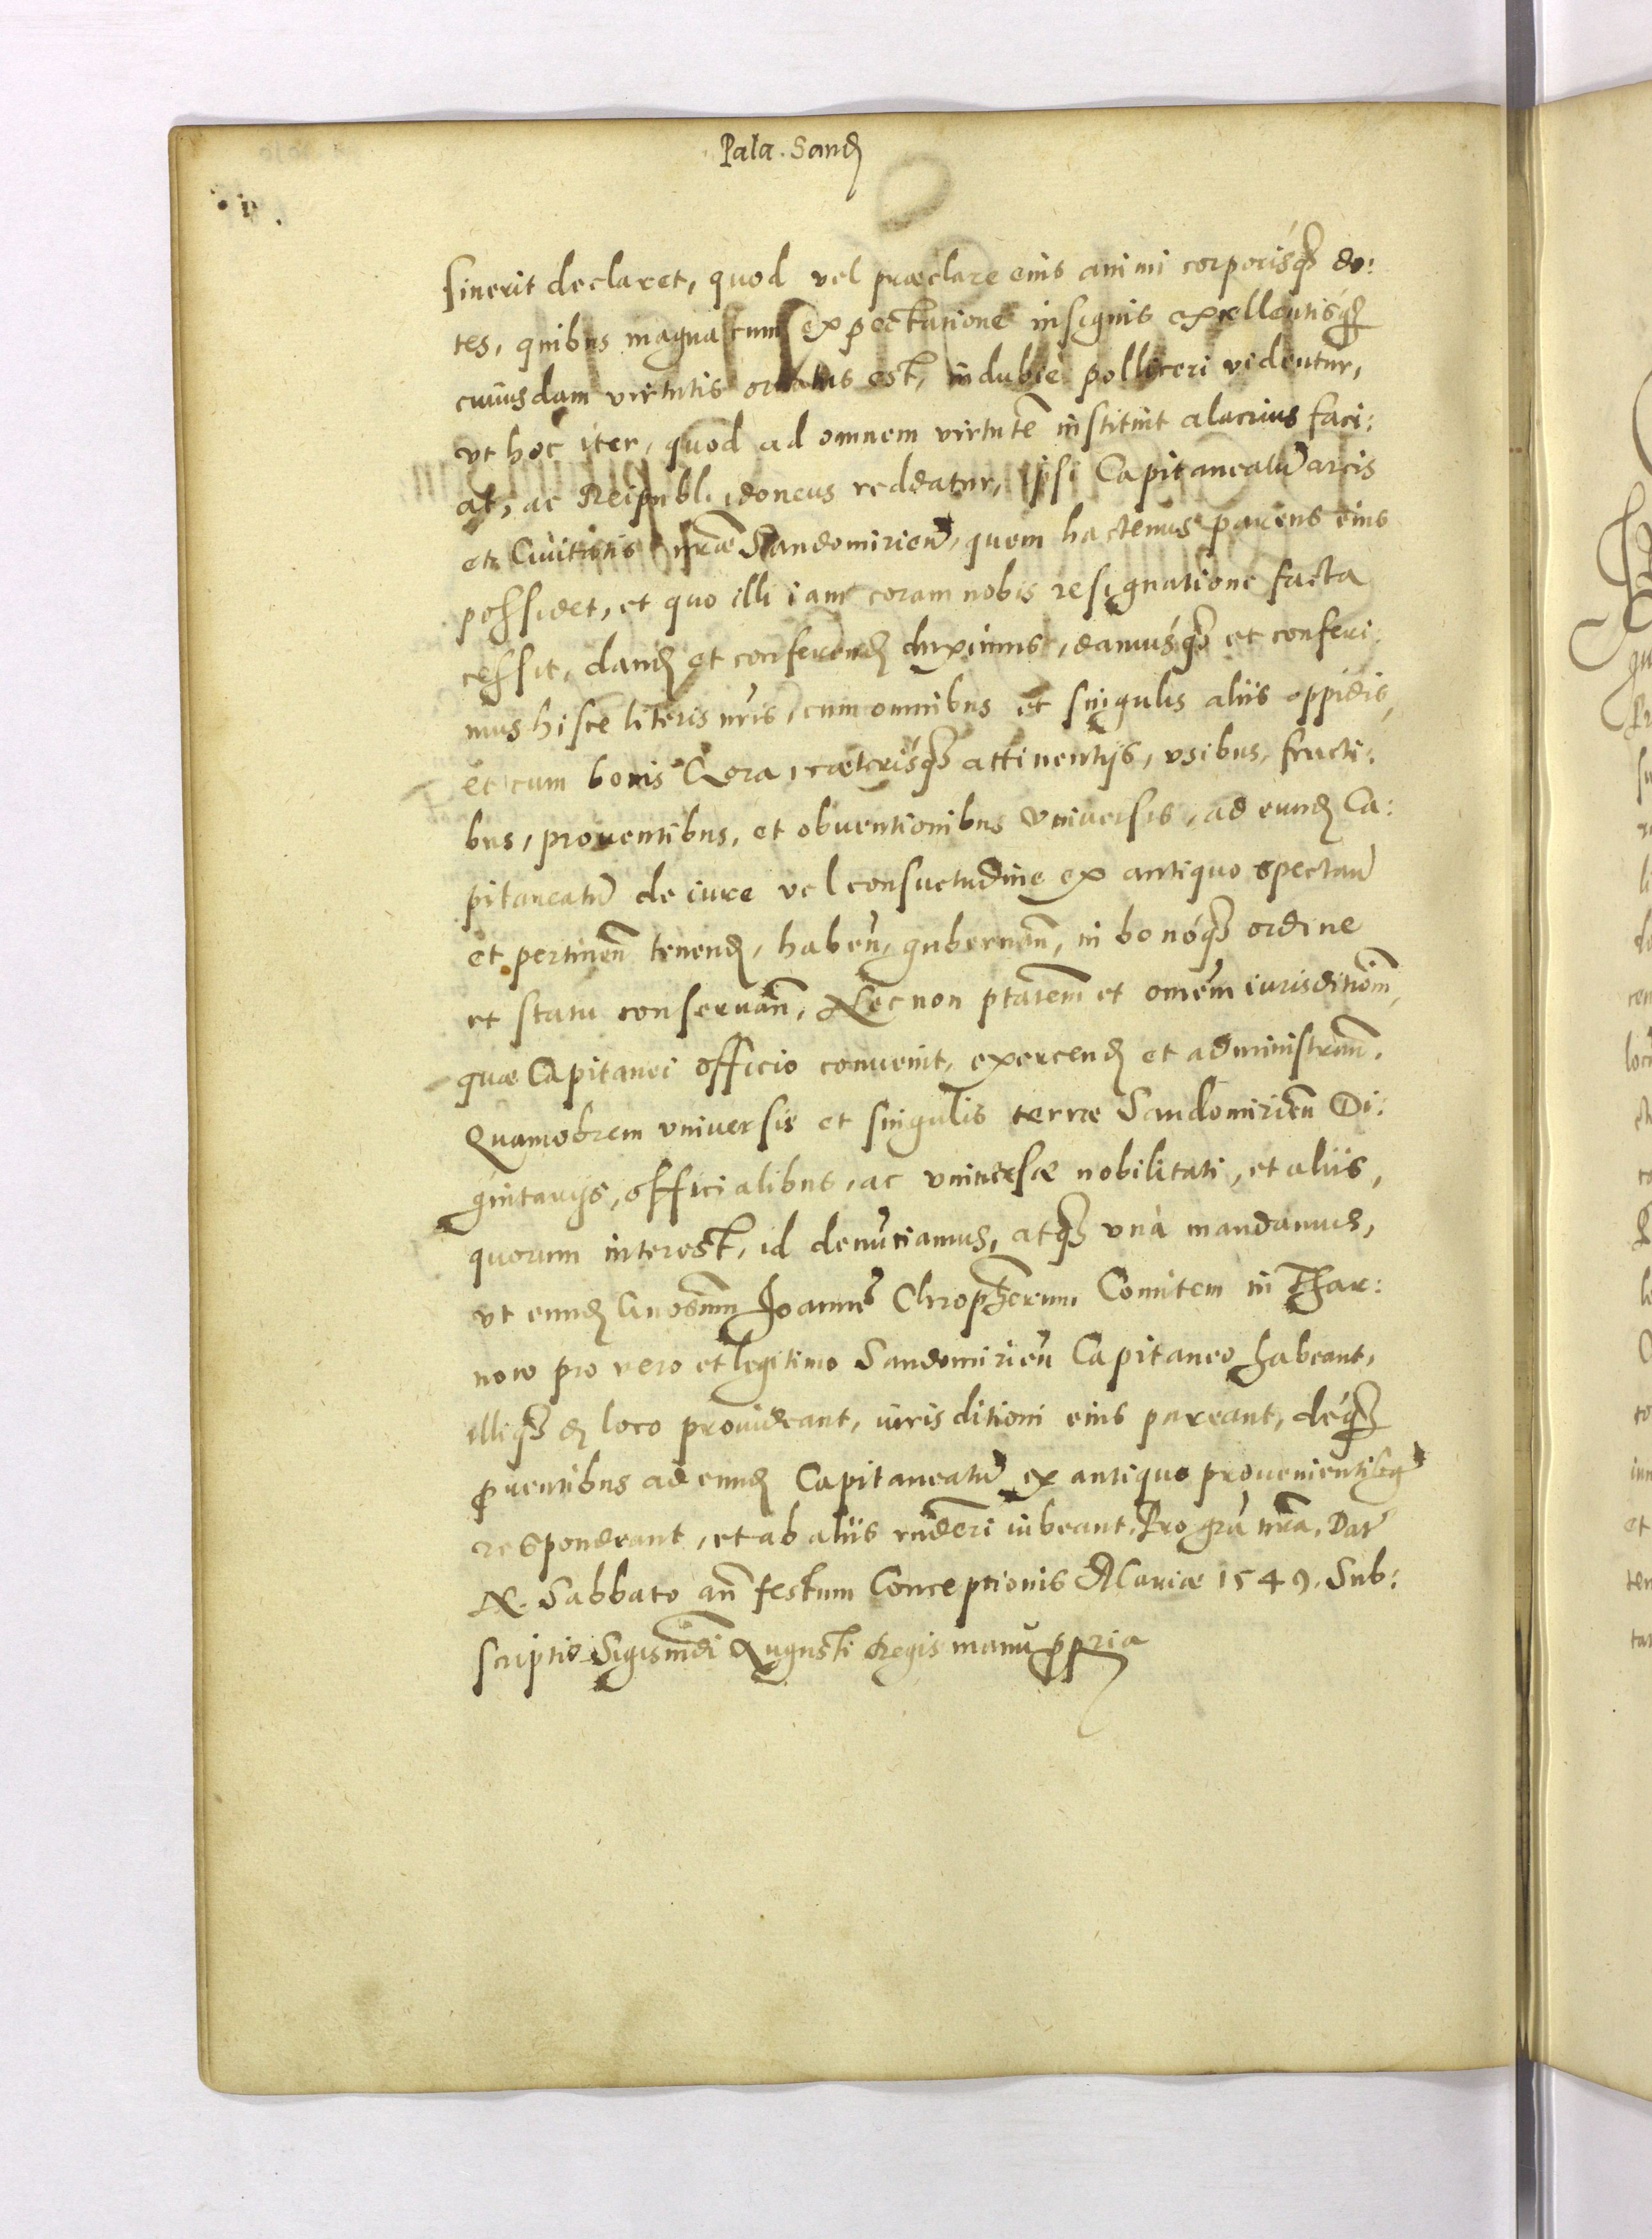 Pala. Sand
sinerit declaret, quod vel præclare eius animi corporisq3 do:
tes, quibus magna cum expectatione insignis excellentisq3
cuiusdam virtutis ornatus est, indubie polliceri videntur,
vt hoc iter, quod ad omnem virtutē instituit alacrius faci:
at, ac Reipubl. idoneus reddatur, ipsi Capitaneatū arcis
et Ciuitatis nr̃æ Sandomirien̄, quem hactenus parens eius
possidet, et quo illi iam coram nobis resignatione facta
cessit, dand et conferend duximus, damusq3 et conferi:
mus hisce literis nr̃is, cum omnibus et singulis aliis oppidis,
et cum bonis Zora, cæterisq3 attinentijs, vsibus, fructi:
bus, prouentibus, et obuentionibus vniuersis, ad eund Ca:
pitaneatū de iure vel consuetudine ex antiquo spectan̄
et pertinen̄ tenend, haben̄, gubernan̄, in bonoq3 ordine
et statu conseruan̄, Nec non ptatem̄ et omem̄ iurisditiōm,
quæ Capitanei officio conuenit, exercend et administran̄.
Quamobrem vniuersis et singulis terræ Sandomirien̄ Di:
gnitarijs, officialibus, ac vniuersæ nobilitati, et aliis,
quorum interest, id denūciamus, atq3 vnà mandamus,
vt eund Gnosum̄ Joannē Christopherum Comitem in Thar:
now pro vero et legitimo Sandomirien̄ Capitaneo habeant,
illiq3 d loco prouideant, iurisditioni eius pareant, deq3
ꝓuentibus ad eund Capitaneatū ex antiquo prouenientibꝫ
respondeant, et ab aliis rnderi iubeant. Pro grã nr̃a. Dat
X. Sabbato an̄ festum Conceptionis Mariæ 1549. Sub:
scriptio Sigismūdi Augusti Regis manu ꝓpria